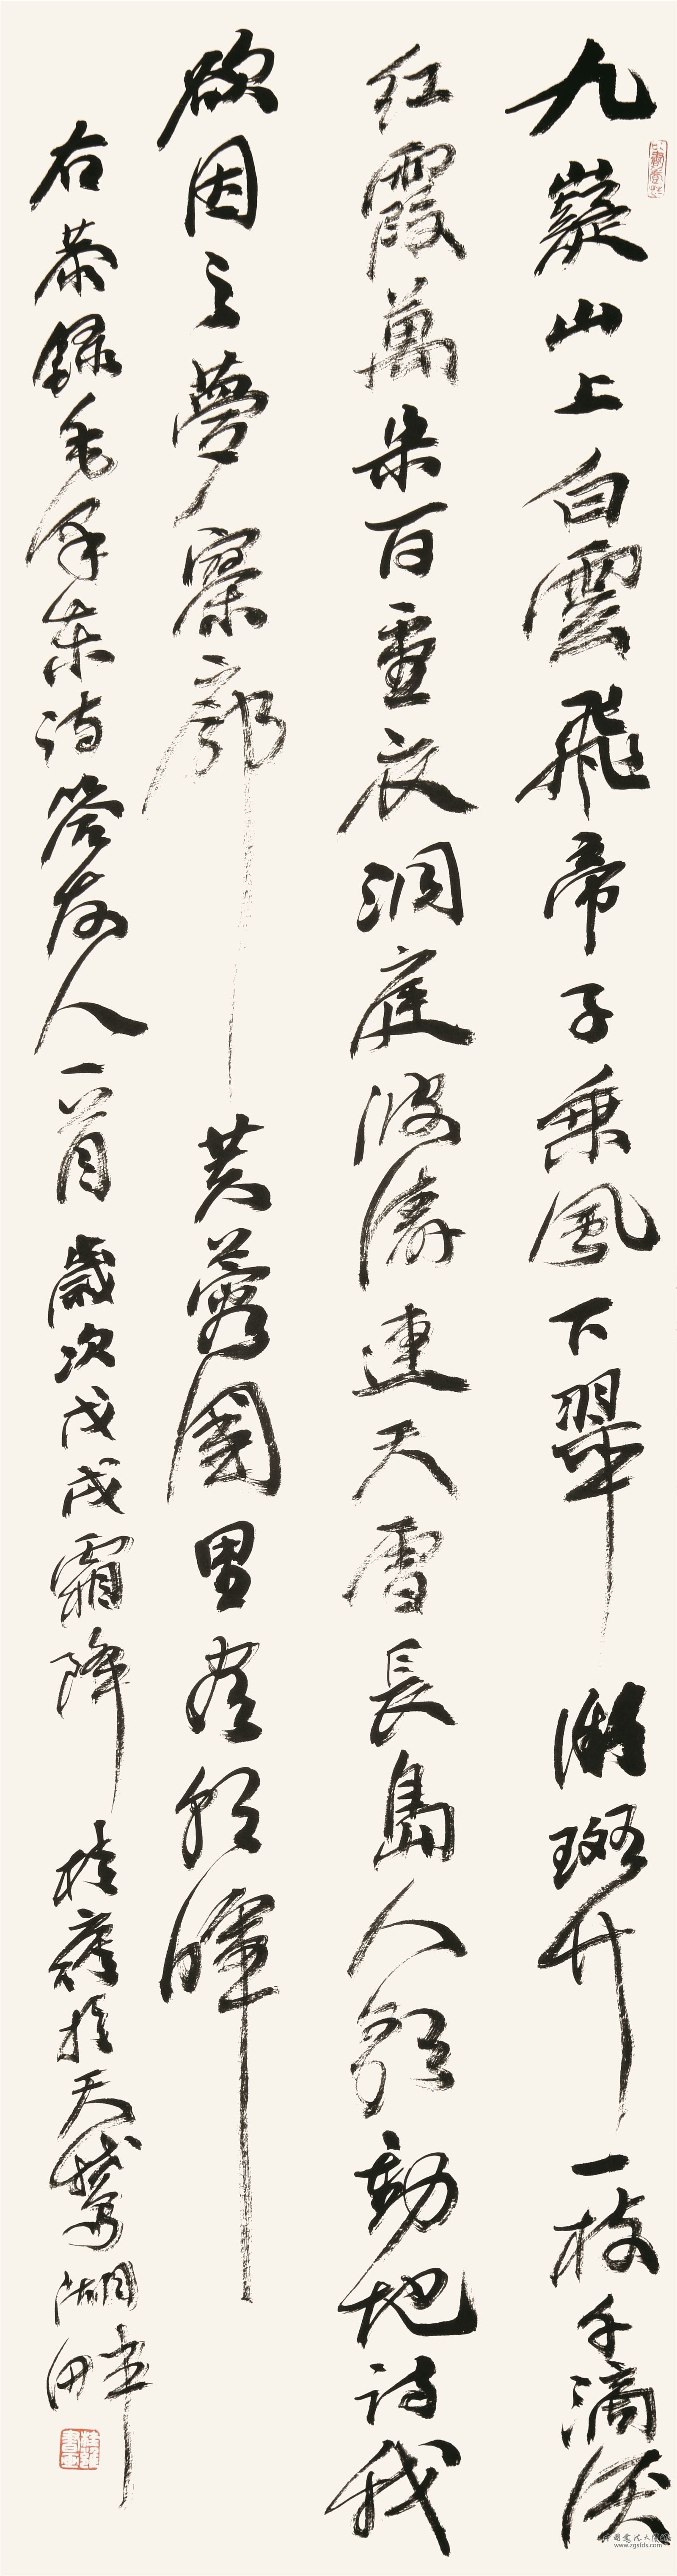 九嶷山上白雲飛帝子乘風下翠微斑竹一枝千滴淚
红霞萬朵百重衣洞庭波濤連天雪長島人歌動地詩我
欲因之夢寥廓芙蓉國里盡朝暉
右恭録毛泽东诗答友人一首歲次戊戌霜降桂於天鵝湖畔
www.zgsfds.com